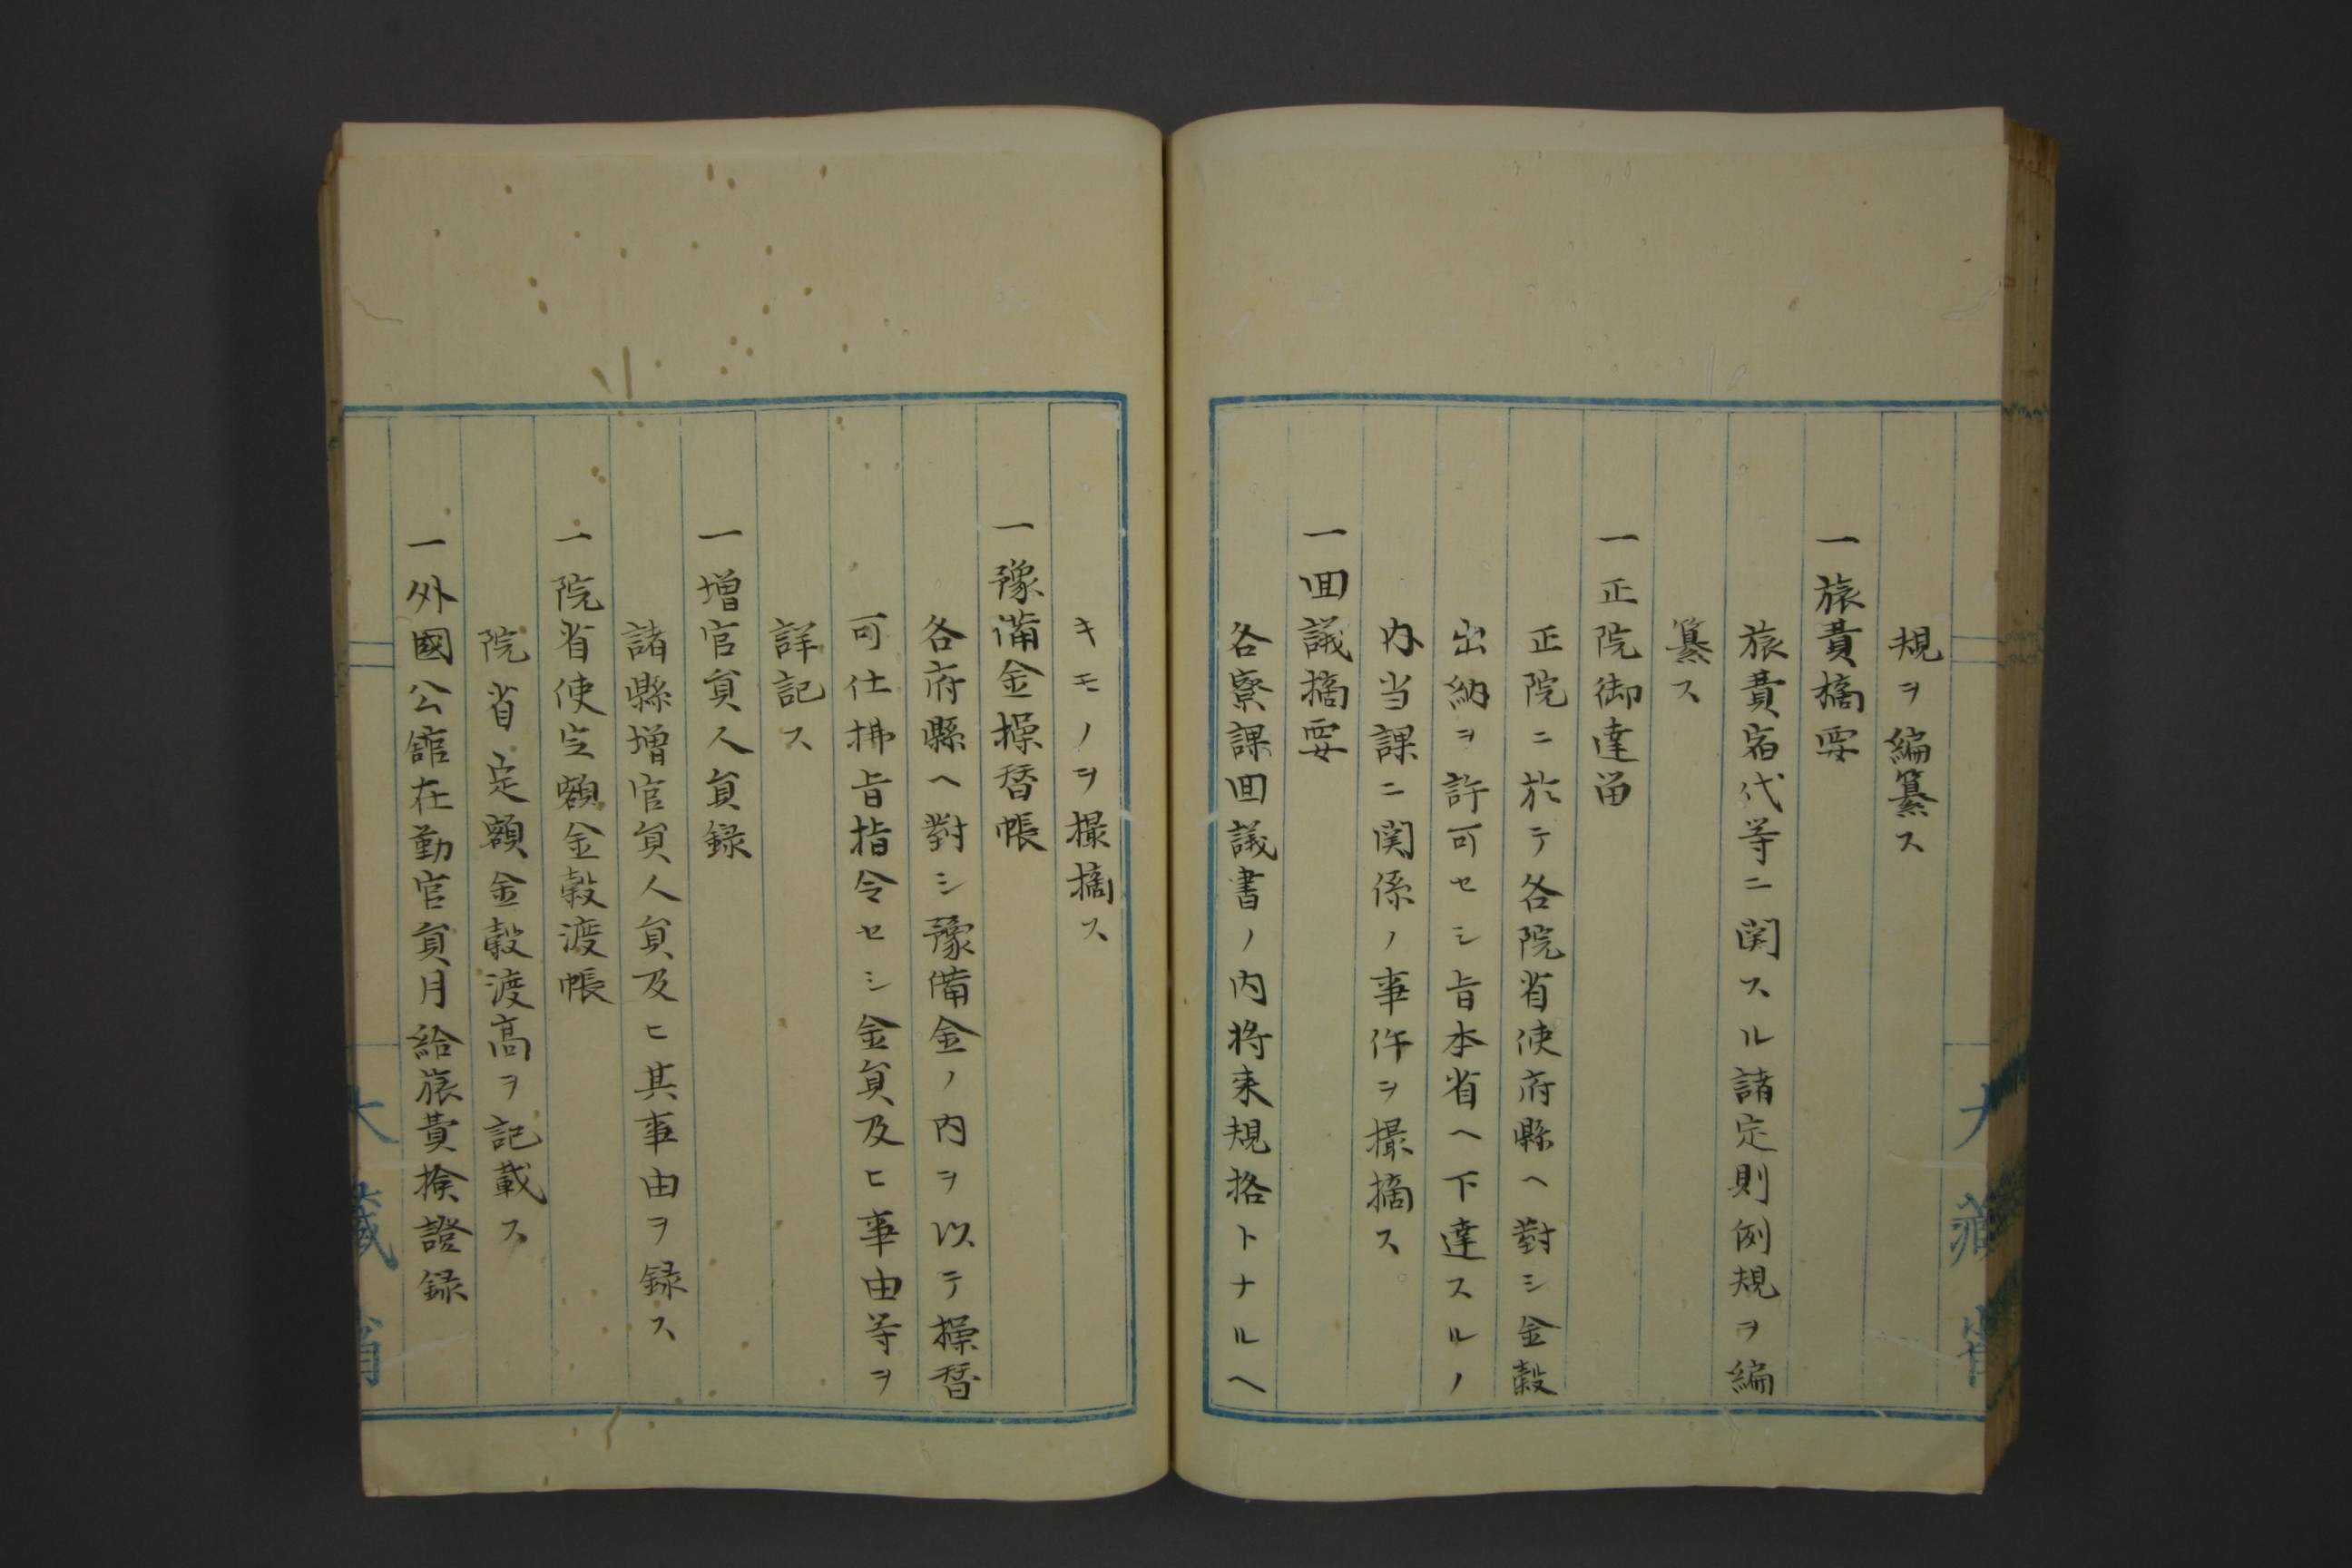 規ヲ編纂ス
一旅費摘要
旅費宿代等ニ関スル諸定則例規ヲ編
纂ス
一正院御達留
正院ニ於テ各院省使府縣ヘ對シ金穀
出納ヲ許可セシ旨本省ヘ下達スルノ
内当課ニ関係ノ事件ヲ撮摘ス
一回議摘要
各寮課回議書ノ内将来規格トナルヘ
キモノヲ撮摘ス
一豫備金操替帳
各府縣ヘ對シ豫備金ノ内ヲ以テ操替
可仕拂旨指令セシ金員及ヒ事由等ヲ
詳記ス
一増官員人員録
諸縣増官員人員及ヒ其事由ヲ録ス
一院省使定額金穀渡帳
院省定額金穀渡高ヲ記載ス
一外國公館在勤官員月給旅費検證録
大藏省
大藏省